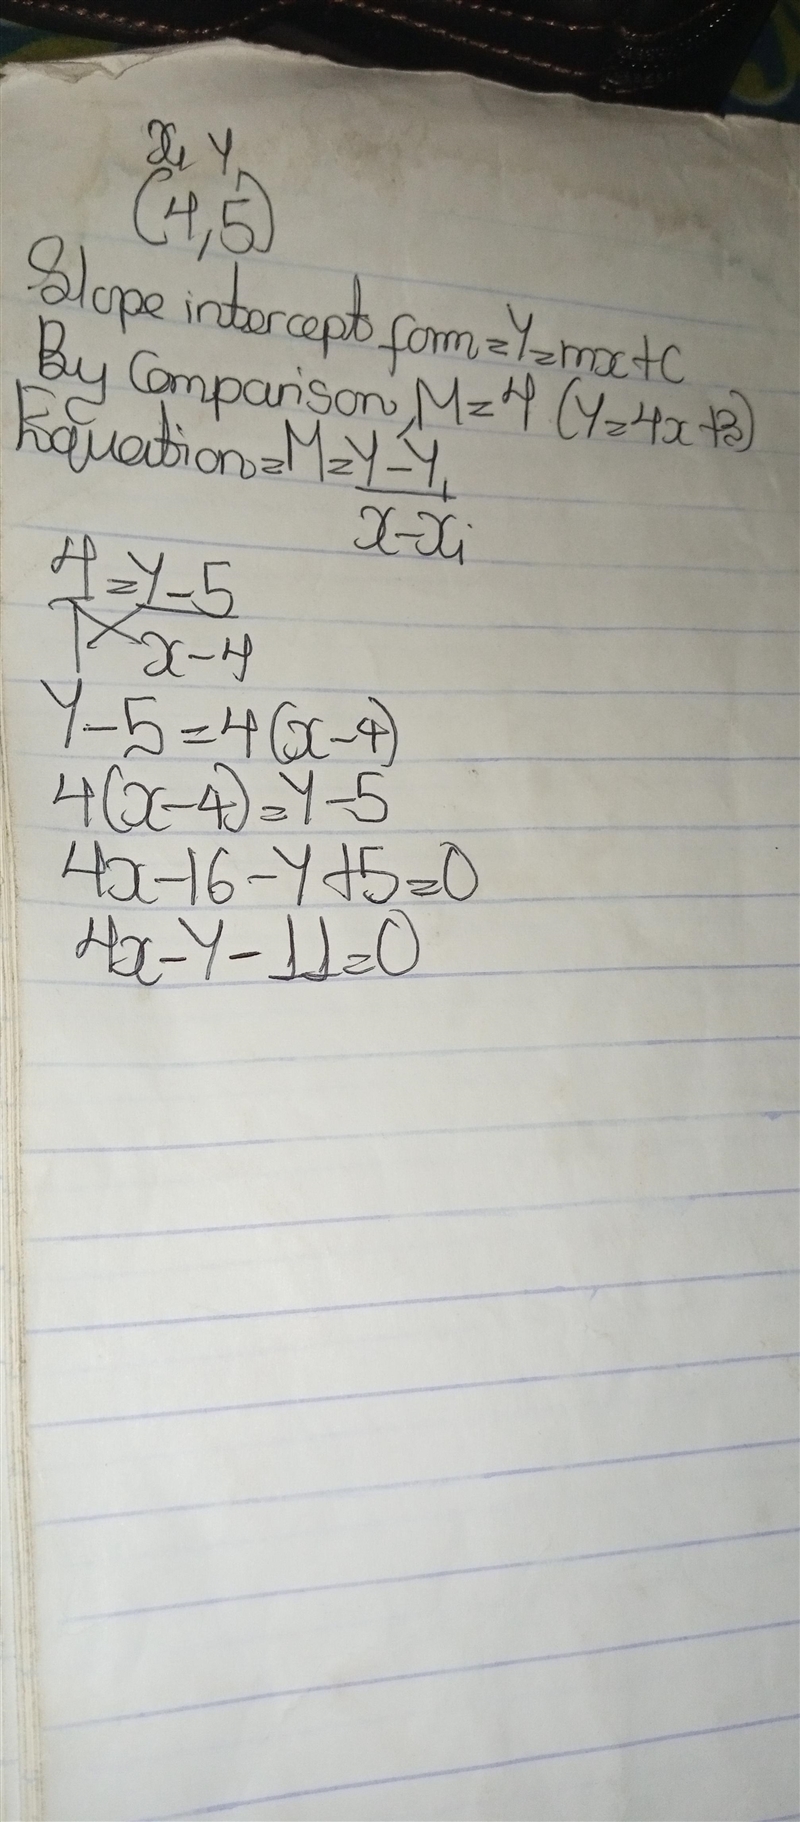 x₁ y₁
(4,5)
Slope intercept form = Y=mx+c
By Comparison, M=4 (Y=4x+3)
Equation=M=Y-Y₁
x-x₁
4=Y-5
1 x-4
Y-5=4(x-4)
4(x-4)=Y-5
4x-16-Y+5=0
4x-Y-11=0